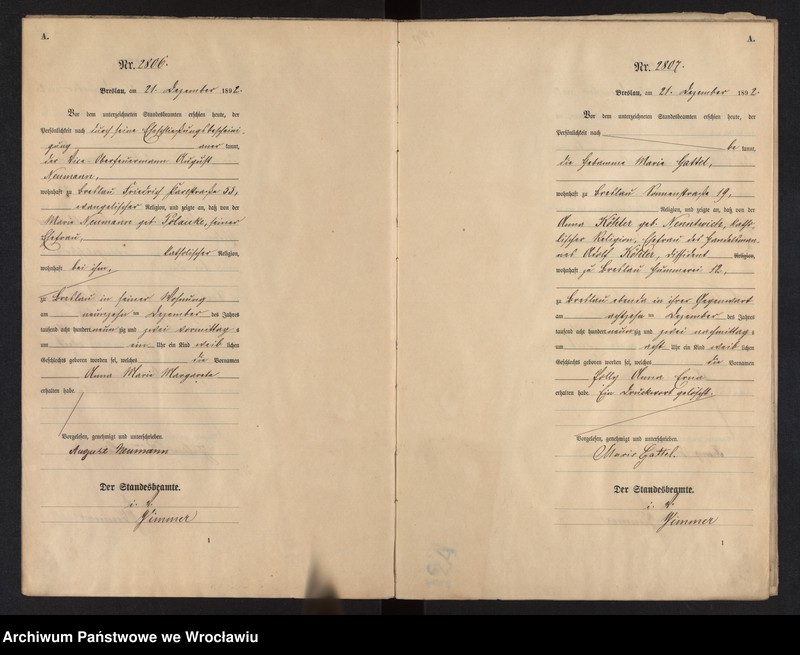 A.
Nr. 2806.
Breslau, am 21. Dezember 1892.
Vor dem unterzeichneten Standesbeamten erschien heute, der
Persönlichkeit nach durch seine Eheschließungsbescheini-
gung aner kannt,
der Vice-Oberfeuermann August
Neumann,
wohnhaft zu Breslau Friedrich Carlstraße 33,
evangelischer Religion, und zeigte an, daß von der
Marie Neumann geb. Polaucke, seiner
Ehefrau,
katholischer Religion,
wohnhaft bei ihm,
zu Breslau in seiner Wohnung
am neunzehn= Dezember des Jahres
tausend acht hundert neun zig und zwei vormittag s
um ein Uhr ein Kind weib lichen
Geschlechts geboren worden sei, welches die Vornamen
Anna Marie Margarete
erhalten habe.
Vorgelesen, genehmigt und unterschrieben.
August Neumann
Der Standesbeamte.
i. V.
Zimmer
1
A.
Nr. 2807.
Breslau, am 21. Dezember 1892.
Vor dem unterzeichneten Standesbeamten erschien heute, der
Persönlichkeit nach
be kannt,
die Hebamme Marie Gattel,
wohnhaft zu Breslau Sonnenstraße 19,
Religion, und zeigte an, daß von der
Anna Köhler geb. Nenntwich, katho-
lischer Religion, Ehefrau des Handelsman-
nes Adolf Köhler, Dissident Religion,
wohnhaft zu Breslau Hummerei 12,
zu Breslau ebenda in ihrer Gegenwart
am achtzehn= Dezember des Jahres
tausend acht hundert neun zig und zwei nachmittag s
um acht Uhr ein Kind weib lichen
Geschlechts geboren worden sei, welches die Vornamen
Anna Erna
erhalten habe. Ein Druckwort gelöscht.
Vorgelesen, genehmigt und unterschrieben.
Marie Gattel.
Der Standesbeamte.
i. V.
Zimmer
1
Archiwum Państwowe we Wrocławiu